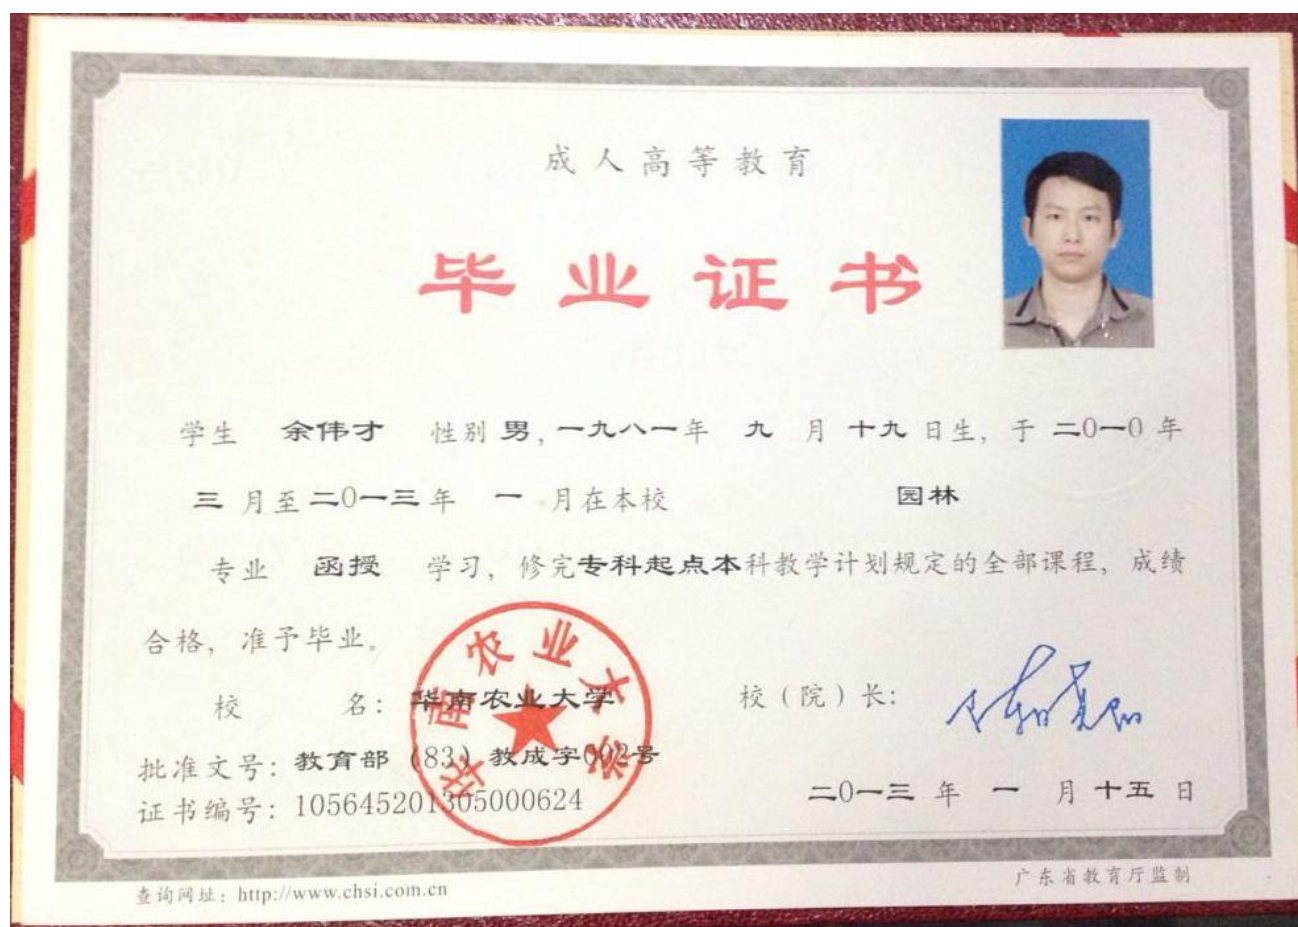 成人高等教育
毕业证书
学生 余伟才 性别 男，一九八一年 九 月 十九 日生，于 二〇一〇 年
三 月至 二〇一三 年 一 月在本校 园林
专业 函授 学习，修完专科起点本科教学计划规定的全部课程，成绩
合格，准予毕业。
华南农业大学
校 名：华南农业大学 校（院）长：
批准文号：教育部（83）教成字002号
证书编号：105645201305000624
二〇一三 年 一 月 十五 日
查询网址：http://www.chsi.com.cn
广东省教育厅监制